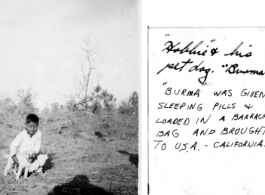 "Hobbie" & his
pet dog. "Burma"
"BURMA" WAS GIVEN
SLEEPING PILLS &
LOADED IN A BARRACK
BAG AND BROUGHT
TO U.S.A. - CALIFORNIA.